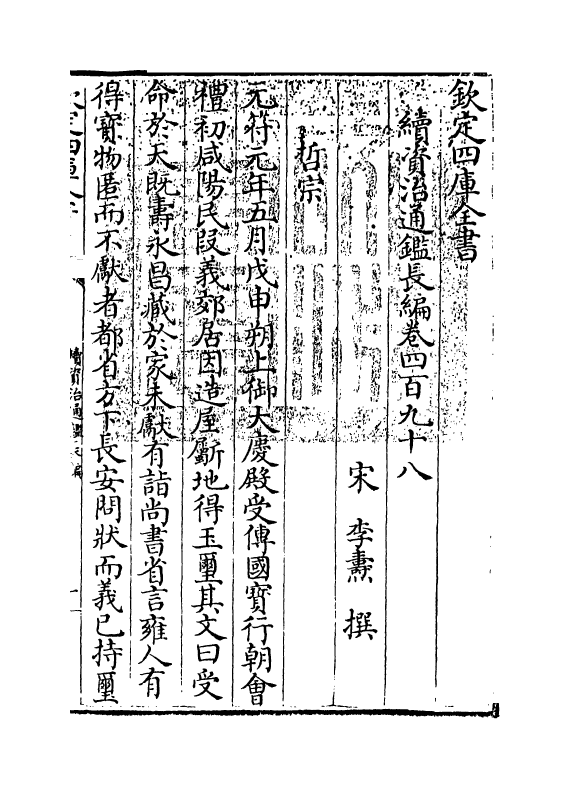 欽定四庫全書
續資治通鑑長編卷四百九十八
宋 李燾 撰
哲宗
元符元年五月戊申朔上御大慶殿受傳國寶行朝會
禮初咸陽民段義郊居因造屋斸地得玉璽其文曰受
命於天既壽永昌藏於家未獻有詣尚書省言雍人有
得寳物匿而不獻者都省方下長安問狀而義已持璽
續資治通鑑長編